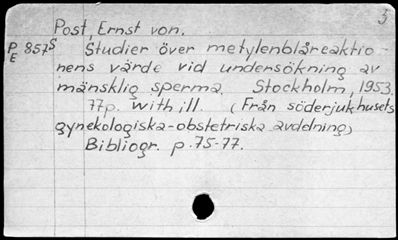 3
Post, Ernst von.
P 857s Studier över metylenblåreaktio-
E nens värde vid undersökning av
mänsklig sperma. Stockholm, 1953.
77p. with ill. (Från söderjukhusets
gynekologiska-obstetriska avddning)
Bibliogr. p.75-77.